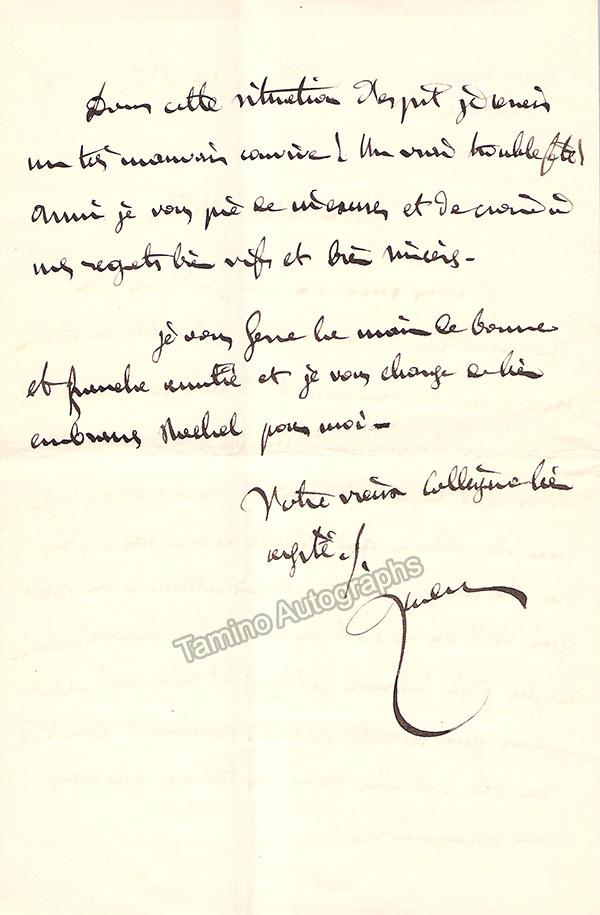 Dans cette situation d'esprit je serais
un très mauvais convive! Un vrai trouble fête!
Aussi je vous prie de m'excuser et de croire à
mes regrets bien vifs et bien sincères -
je vous serre la main de bonne
et franche amitié et je vous charge de bien
embrasser Rachel pour moi -
Votre vieux collègue bien
Tamino Autographs